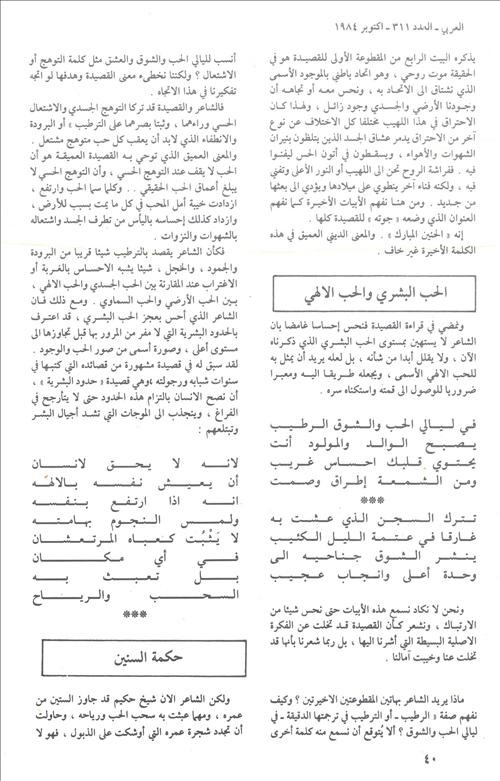 العربي - العدد ٣١١ - اكتوبر ١٩٨٤
يذكره البيت الرابع من المقطوعة الأولى للقصيدة هو في
الحقيقة موت روحي ، وهو اتحاد باطني بالموجود الأسمى
الذي نشتاق الى الاتحاد به ، ونحس معه أو تجاهه أن
وجودنا الأرضي والجسدي وجود زائل . ولهذا كان
الاحتراق في هذا اللهيب مختلفا كل الاختلاف عن نوع
آخر من الاحتراق يدمر عشاق الجسد الذين يتلظون بنيران
الشهوات والأهواء ، ويسقطون في أتون الحس ليفنوا
فيه . ففراشة الروح تحن الى اللهيب أو النور الأعلى وتفنى
فيه ، ولكنه فناء آخر ينطوي على ميلادها ويؤدي الى بعثها
من جديد . ومن هنا نفهم الأبيات الأخيرة كما نفهم
العنوان الذي وضعه « جوته » للقصيدة كلها .
إنه « الحنين المبارك » . والمعنى الديني العميق في هذه
الكلمة الأخيرة غير خاف .
الحب البشري والحب الالهي
ونمضي في قراءة القصيدة فنحس إحساسا غامضا بان
الشاعر لا يستهين بمستوى الحب البشري الذي ذكرناه
الآن ، ولا يقلل أبدا من شأنه ، بل لعله يريد أن يمثل به
للحب الالهي الأسمى ، ويجعله طريقا اليه ومعبرا
ضروريا للوصول الى قمته واستكناه سره .
في ليالي الحب والشوق الرطيب
يصبح الوالد والمولود أنت
يحتوي قلبك احساس غريب
ومن الشمعة إطراق وصمت
***
تترك السجن الذي عشت به
غارقا في عتمة الليل الكئيب
ينشر الشوق جناحيه الى
وحدة أعلى وانجاب عجيب
ونحن لا نكاد نسمع هذه الأبيات حتى نحس شيئا من
الارتباك ، ونشعر كأن القصيدة قد تخلت عن الفكرة
الاصلية البسيطة التي أشرنا اليها ، بل ربما شعرنا بأنها قد
تخلت عنا وخيبت آمالنا .
ماذا يريد الشاعر بهاتين المقطوعتين الاخيرتين ؟ وكيف
نفهم صفة « الرطيب - أو الترطيب في ترجمتها الدقيقة - في
ليالي الحب والشوق ؟ ألا يُتوقع أن نسمع منه كلمة أخرى
أنسب لليالي الحب والشوق والعشق مثل كلمة التوهج أو
الاشتعال ؟ ولكننا نخطىء معنى القصيدة وهدفها لو اتجه
تفكيرنا في هذا الاتجاه .
فالشاعر والقصيدة قد تركا التوهج الجسدي والاشتعال
الحسي وراءهما ، وثبتا بصرهما على الترطيب ، أو البرودة
والانطفاء الذي لابد أن يعقب كل حب متوهج مشتعل .
والمعنى العميق الذي توحي به القصيدة العميقة هو أن
الحب لا يقف عند التوهج الحسي ، وأن التوهج الحسي لا
يبلغ أعماق الحب الحقيقي . . وكلما سما الحب وارتفع ،
ازدادت خيبة أمل المحب في كل ما يمت بسبب للأرض ،
وازداد كذلك إحساسه باليأس من تطرف الجسد واشتعاله
بالشهوات والنزوات .
فكأن الشاعر يقصد بالترطيب شيئا قريبا من البرودة
والجمود ، والخجل ، شيئا يشبه الاحساس بالغربة أو
الاغتراب عند المقارنة بين الحب الجسدي والحب الالهي ،
بين الحب الأرضي والحب السماوي . ومع ذلك فان
الشاعر الذي أحس بعجز الحب البشري ، قد اعترف
بالحدود البشرية التي لا مفر من المرور بها قبل تجاوزها الى
مستوى أعلى ، وصورة أسمى من صور الحب والوجود .
لقد سبق له في قصيدة مشهورة من قصائده التي كتبها في
سنوات شبابه ورجولته ،وهي قصيدة « حدود البشرية » ،
أن نصح الانسان بالتزام هذه الحدود حتى لا يتأرجح في
الفراغ ، وينجذب الى الموجات التي تشد أجيال البشر
وتبتلعهم :
لانه لا يحق لانسان
أن يعيش نفسه بالاله
انه اذا ارتفع بنفسه
ولمس النجوم بهامته
لا يَثْبُت كعباه المرتعشان
في أي مكان
بل تعبث به
السحب والرياح
***
حكمة السنين
ولكن الشاعر الان شيخ حكيم قد جاوز الستين من
عمره ، ومهما عبثت به سحب الحب ورياحه ، وحاولت
أن تجدد شجرة عمره التي أوشكت على الذبول ، فهو لا
٤٠